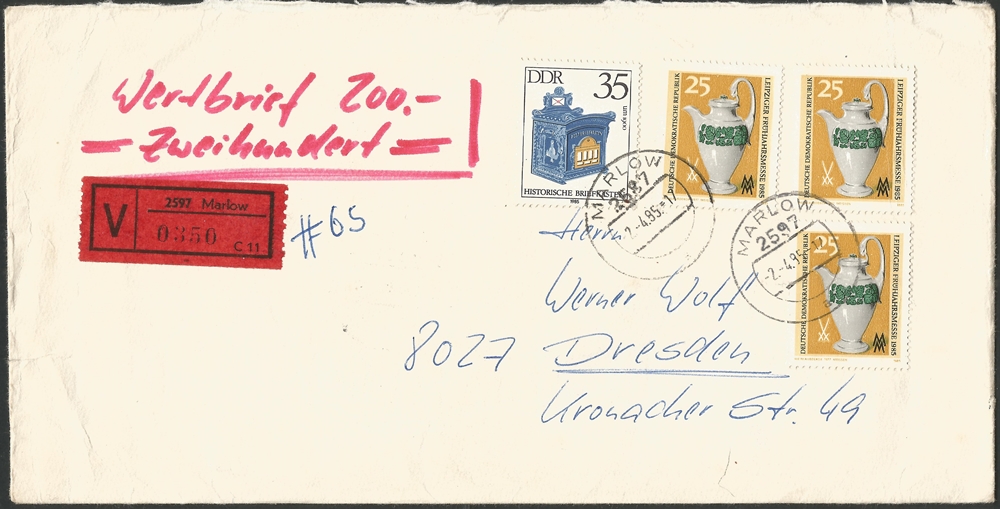 Wertbrief 200.-
= Zweihundert =
V
2597 Marlow
0350
C 11
#65
DDR 35
um 1900
HISTORISCHE BRIEFKÄSTEN
1985
25
LEIPZIGER FRÜHJAHRSMESSE 1985
DEUTSCHE DEMOKRATISCHE REPUBLIK
MM
25
LEIPZIGER FRÜHJAHRSMESSE 1985
DEUTSCHE DEMOKRATISCHE REPUBLIK
MM
25
LEIPZIGER FRÜHJAHRSMESSE 1985
DEUTSCHE DEMOKRATISCHE REPUBLIK
MM
MARLOW
2597
-2.-4.85.-17
MARLOW
2597
-2.-4.85.-17
Herrn
Werner Wolf
8027 Dresden
Kronacher Str. 49